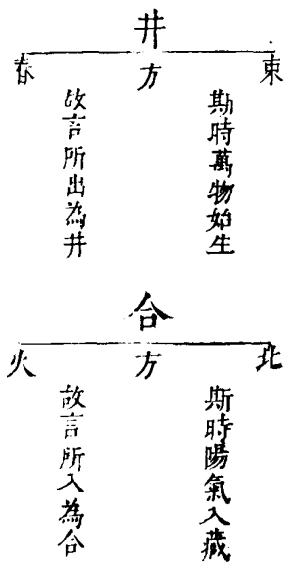 井
東
方
春
斯時萬物始生
故言所出為井
合
北
方
火
斯時陽氣入藏
故言所入為合